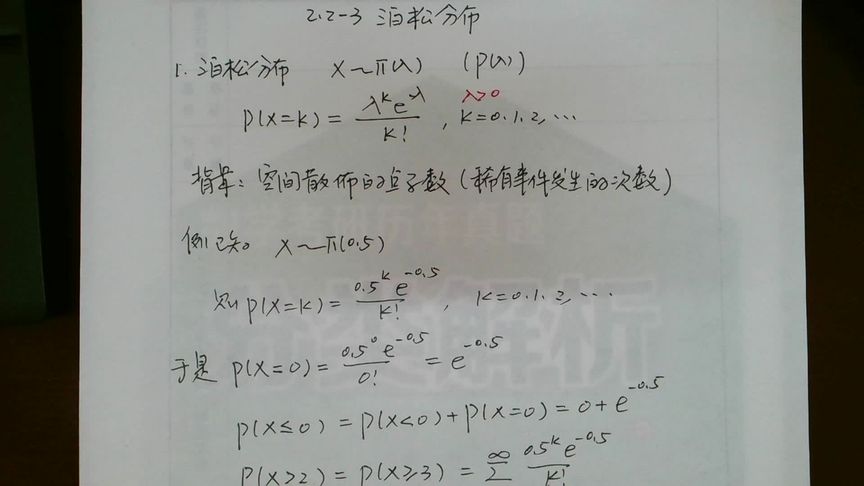 2.2-3 泊松分布
1. 泊松分布 X~π(λ) (P(λ))
λ>0
P(X=K) = λ^K e^λ / K! , K=0.1.2, ...
背景: 空间散布的粒子数 (稀有事件发生的次数)
例 已知 X~π(0.5)
则 P(X=K) = 0.5^K e^-0.5 / K! , K=0.1.2, ...
于是 P(X=0) = 0.5^0 e^-0.5 / 0! = e^-0.5
P(X≤0) = P(X<0) + P(X=0) = 0 + e^-0.5
P(X>2) = P(X≥3) = ∞ Σ 0.5^K e^-0.5 / K!